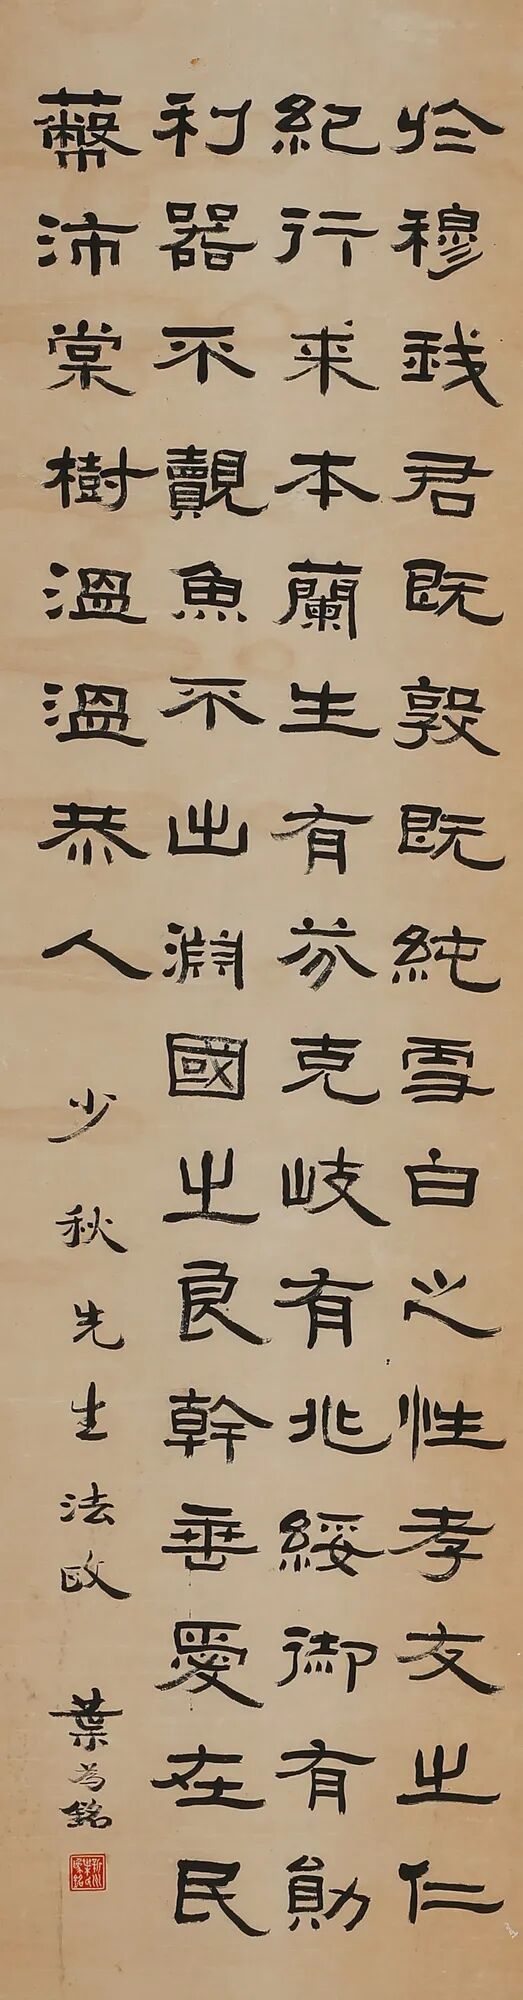 於穆我君既敦既純雪白之性孝友之仁
紀行来本蘭生有芬克岐有兆綏御有勛
利器不覿魚不出淵國之良幹垂愛在民
蔽沛棠樹溫溫恭人
少秋先生法政
葉為銘